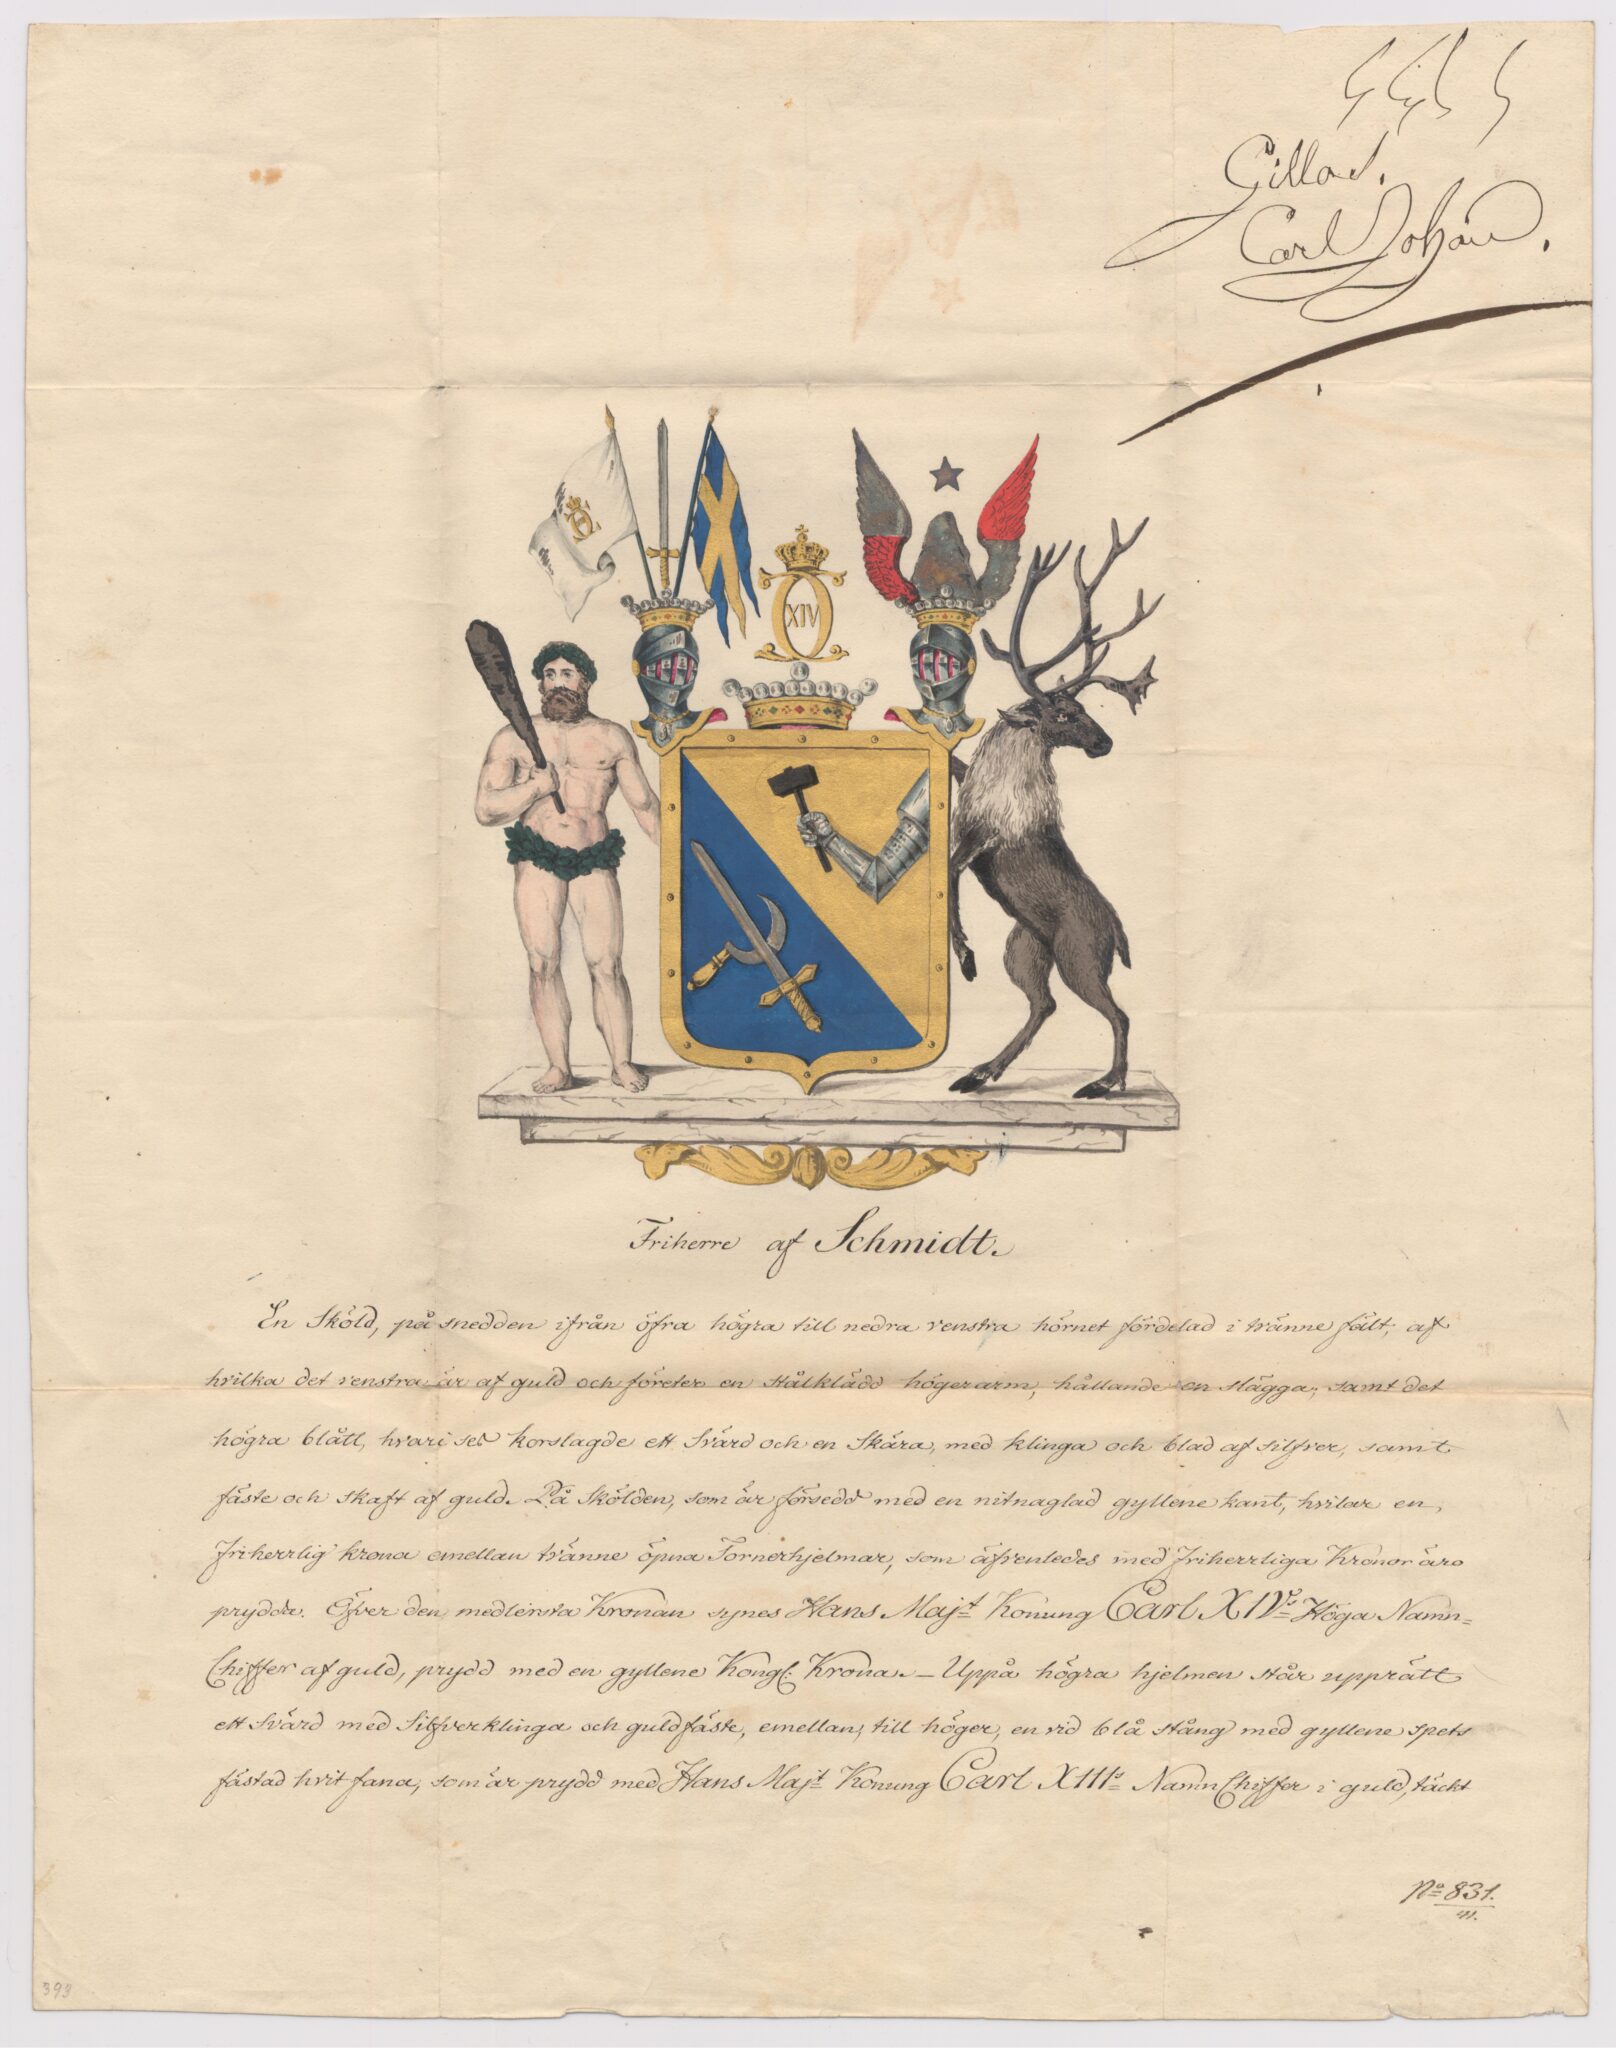 Gillas.
Carl Johan.
XIV
Friherre af Schmidt.
En Sköld, på snedden ifrån öfra högra till nedra venstra hörnet fördelad i tvänne fält, af
hvilka det venstra är af guld och företer en stålklädd högerarm, hållande en slägga, samt det
högra blått, hvari ses korslagde ett Svärd och en Skära, med klinga och blad af silfver, samt
fäste och skaft af guld. På Skölden, som är försedd med en nitnaglad gyllene kant, hvilar en,
friherrlig krona emellan tvänne öpna Tornerhjelmar, som äfvenledes med friherrliga Kronor äro
prydda. Öfver den medlersta Kronan synes Hans Majt Konung Carl XIVs Höga Namn=
Chiffer af guld, prydd med en gyllene Kongl: Krona. – Uppå högra hjelmen står upprätt
ett Svärd med Silfverklinga och guldfäste, emellan, till höger, en vid blå stång med gyllene spets
fästad hvit fana, som är prydd med Hans Majt Konung Carl XIIIs Namn Chiffer i guld, täckt
No 831.
41.
393